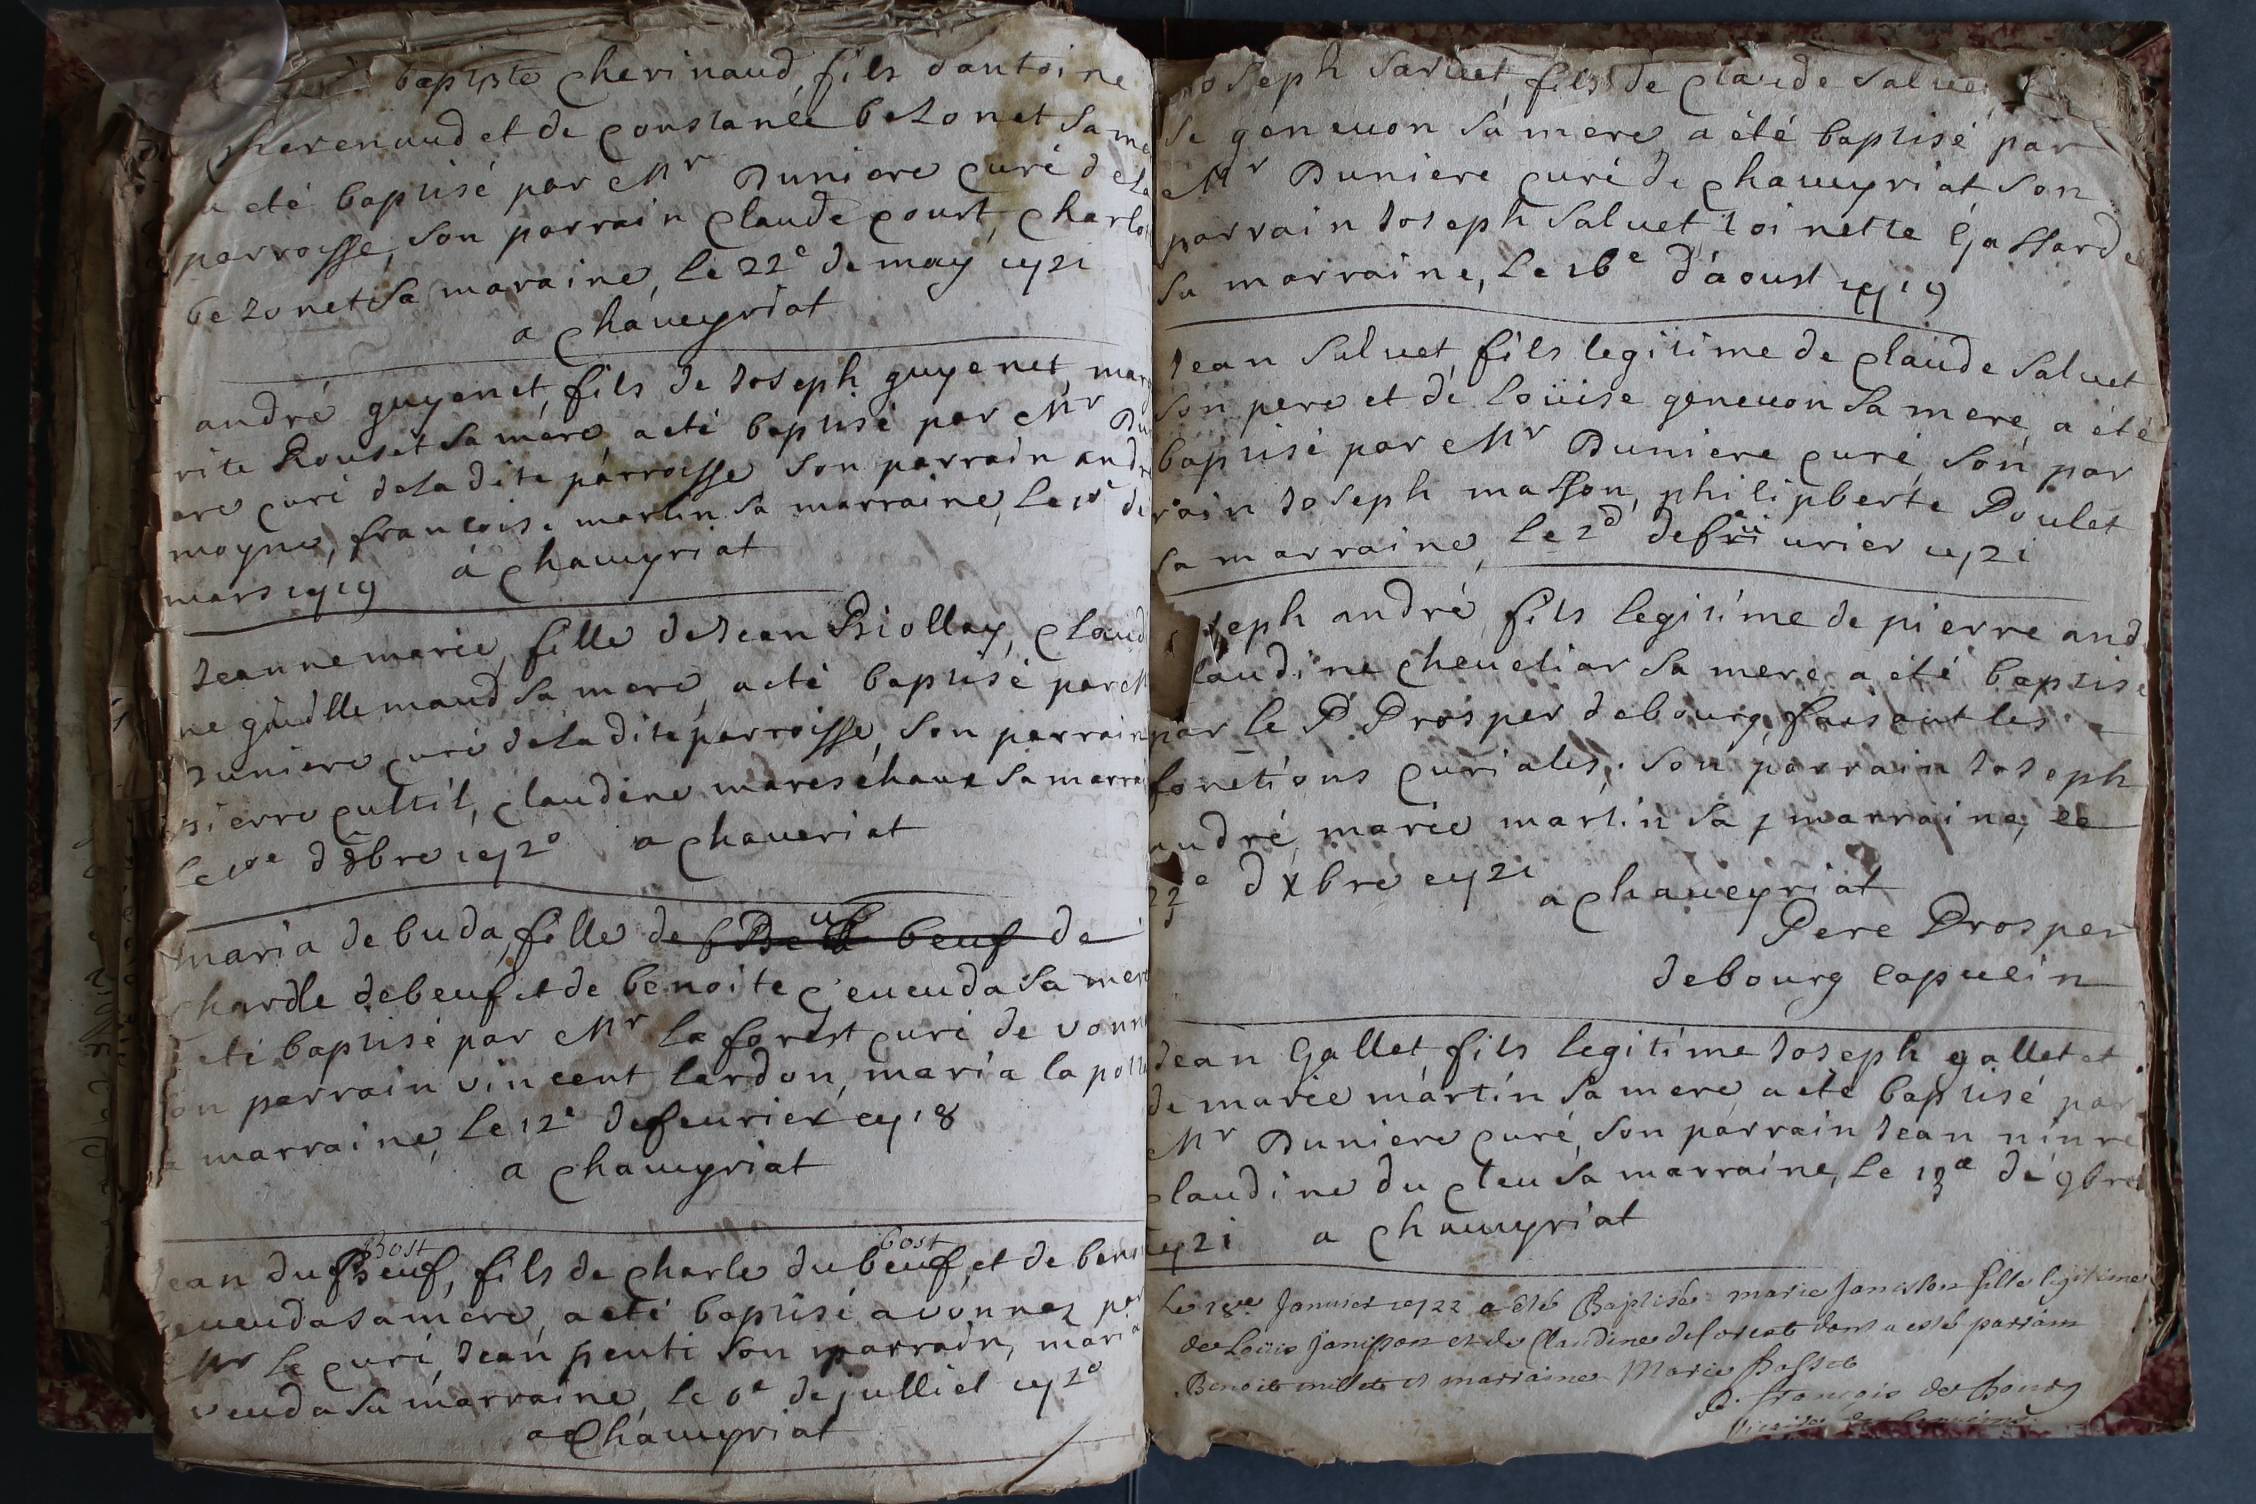 baptiste cherinaud, fils dantoine
cherenaud et de constance bezonet sa
a eté baptisé par Mr Duniere curé dela
parroisse, son parrain claude court, charlo
bezonet sa maraine, le 22e de may 1721
a chaveyriat
andré guyenet, fils de Joseph guyenet, marg
rite Rouset sa mere a eté baptisé par Mr Du
ere curé dela dite parroisse son parrain andre
moyne, francoise martin sa marraine, le de
mars 1719 a chaveyriat
Jeanne marie, fille de Jean Riollay, claud
ne guillemaud sa mere, a eté baptisé par M
duniere curé dela dite parroisse, son parrain
pierre cultil, claudine mareschaux sa marra
le d8bre 1720 a chaveriat
maria de buda, fille de beuf de
charle debeuf et de benoite sa mere
eté baptisé par Mr la forest curé de vonn
son parrain vincent lardon, maria la
marraine, le 12e de feurier 1718
a chaveyriat
Bost bost
Jean du Beuf, fils de charle du beuf, et de beno
sa mere, a eté baptisé a vonnez par
Mr le curé, Jean son parrain, maria
sa marraine, le 6e de julliet 1720
a chaveyriat
Joseph Salvet, fils de claude Salvet
de genevon sa mere, a été baptisé par
Mr Duniere curé de chaveyriat, son
parrain Joseph Salvet toinette Gassard
sa marraine, le 16e d'aoust 1719
Jean Salvet fils legitime de claude Salvet
son pere et de Loüise genevon sa mere, a été
baptisé par Mr Duniere curé, son par
rain Joseph masson, philipberte Poulet
sa marraine, le 2d de feurier 1721
seph andré, fils legitime de pierre and
laudine cheveliar sa mere a été baptisé
par le P Prosper debourg, faisant les
fonctions curiales, son parrain Joseph
andré, marie martin sa marraine, le
22e dxbre 1721 a chaveyriat
Pere Prosper
debourg capucin
Jean Gallet, fils legitime Joseph gallet et
de marie martin sa mere a eté baptisé par
Mr Duniere curé, son parrain Jean ninre
claudine du cleu sa marraine, le 13e de 9bre
1721 a chaveyriat
Le Janvier 1722 a eté Baptisée marie Janisson fille legitime
de Loüis Janisson et de Claudine deforest dont a esté parrain
Benoit millet et marraine Marie Basset
P. françois de Bourg